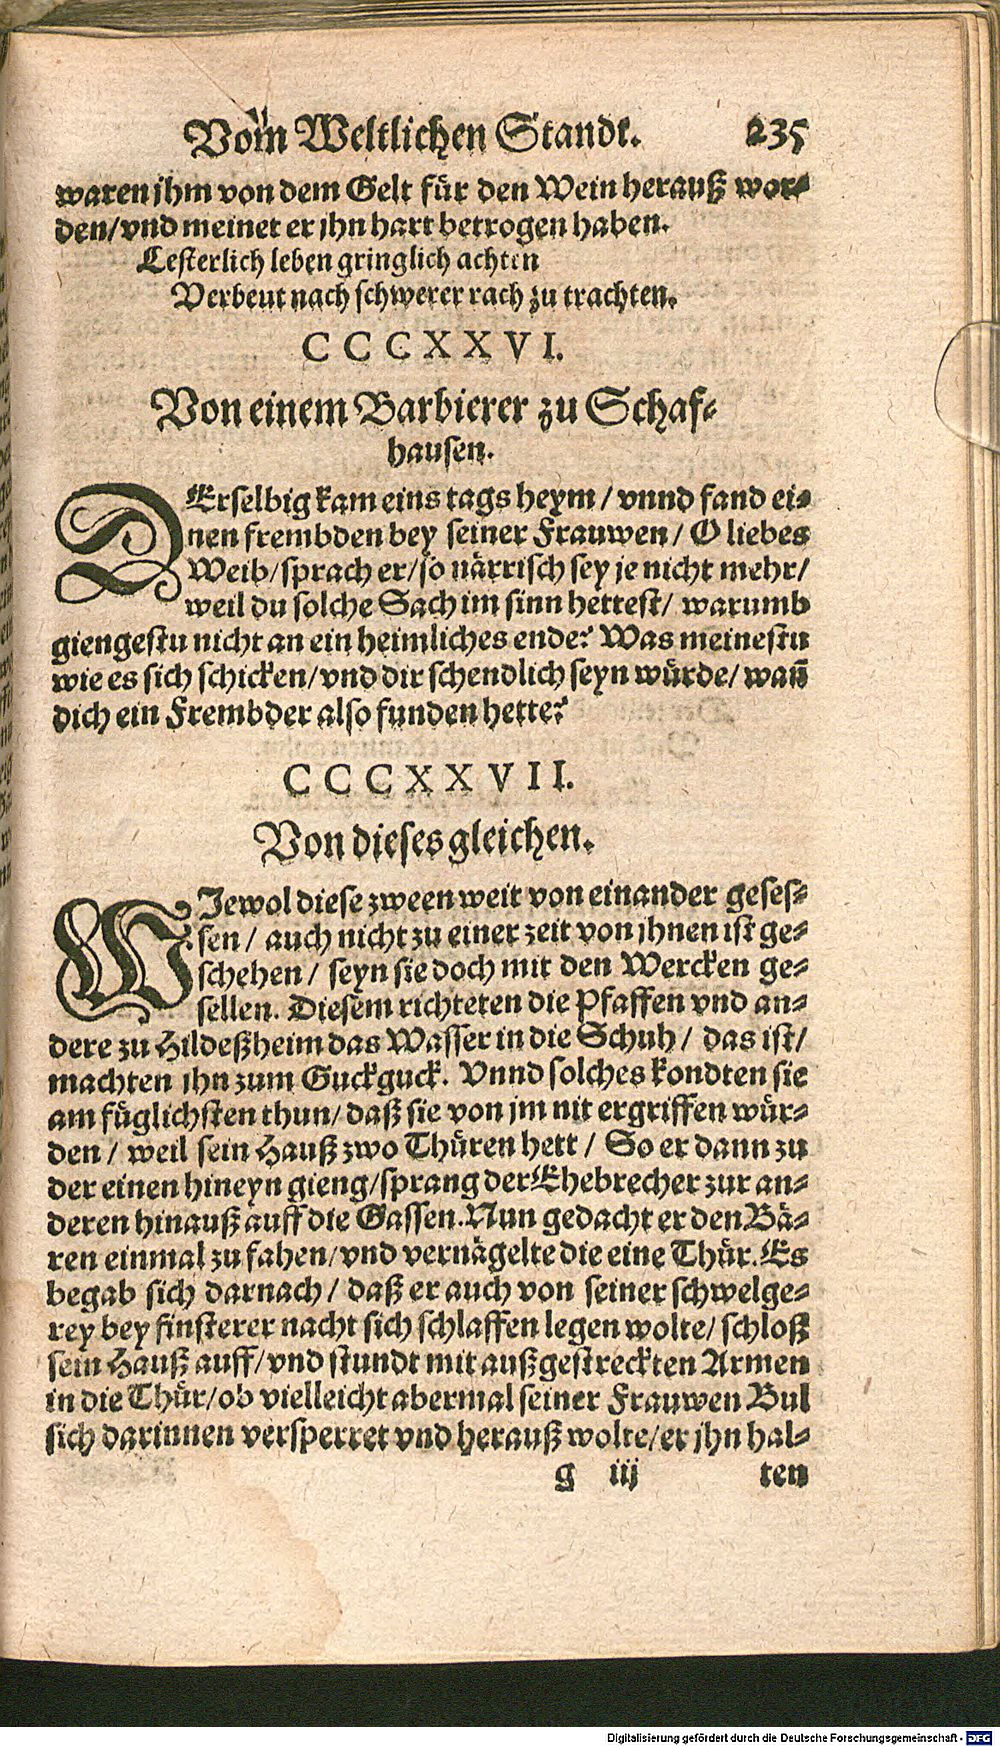 Vom Weltlichen Standt. 235
waren jhm von dem Gelt für den Wein herauß wor-
den/vnd meinet er jhn hart betrogen haben.
Lesterlich leben gringlich achten
Verbeut nach schwerer rach zu trachten.
CCCXXVI.
Von einem Barbierer zu Schaf-
hausen.
DErselbig kam eins tags heym / vnnd fand ei-
nen frembden bey seiner Frauwen / O liebes
Weib/sprach er/so närrisch sey je nicht mehr/
weil du solche Sach im sinn hettest/ warumb
giengestu nicht an ein heimliches ende? Was meinestu
wie es sich schicken/vnd dir schendlich seyn würde/wañ
dich ein Frembder also funden hette?
CCCXXVII.
Von dieses gleichen.
WJewol diese zween weit von einander geses-
sen / auch nicht zu einer zeit von jhnen ist ge-
schehen / seyn sie doch mit den Wercken ge-
sellen. Diesem richteten die Pfaffen vnd an-
dere zu Hildeßheim das Wasser in die Schuh / das ist/
machten jhn zum Guckguck. Vnnd solches kondten sie
am füglichsten thun/daß sie von jm nit ergriffen wür-
den / weil sein Hauß zwo Thüren hett / So er dann zu
der einen hineyn gieng/sprang der Ehebrecher zur an-
deren hinauß auff die Gassen. Nun gedacht er den Bä-
ren einmal zu fahen/vnd vernägelte die eine Thür. Es
begab sich darnach / daß er auch von seiner schwelge-
rey bey finsterer nacht sich schlaffen legen wolte/ schloß
sein Hauß auff/vnd stundt mit außgestreckten Armen
in die Thür/ob vielleicht abermal seiner Frauwen Bul
sich darinnen versperret vnd herauß wolte/er jhn hal-
g iij ten
Digitalisierung gefördert durch die Deutsche Forschungsgemeinschaft - DFG